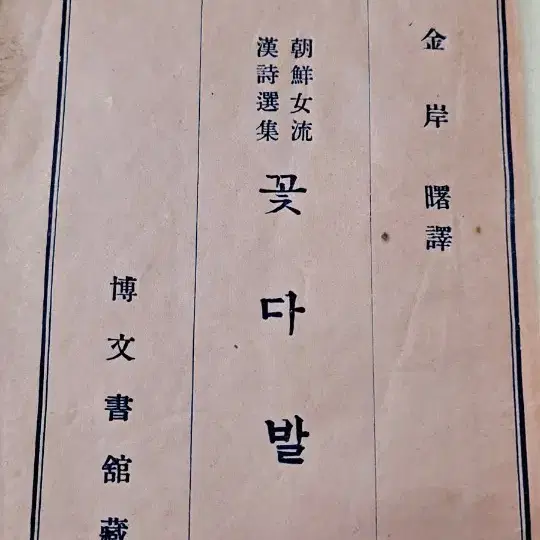 金岸曙譯
朝鮮女流
漢詩選集
꽃다발
博文書舘藏